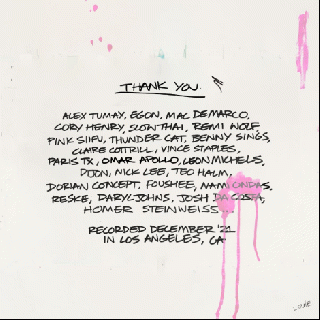 THANK YOU.
ALEX TUMAY, EGON, MAC DEMARCO,
CORY HENRY, SLOWTHAI, REMI WOLF,
PINK SIIFU, THUNDER CAT, BENNY SINGS,
CLAIRE COTTRILL, VINCE STAPLES,
PARIS TX, OMAR APOLLO, LEON MICHELS,
DIJON, NICK LEE, TEO HALM,
DORIAN CONCEPT, FOUSHEE, NAMI ONDAS,
RESKE, DARYL JOHNS, JOSH DA COSTA,
HOMER STEINWEISS...
RECORDED DECEMBER '21
IN LOS ANGELES, CA